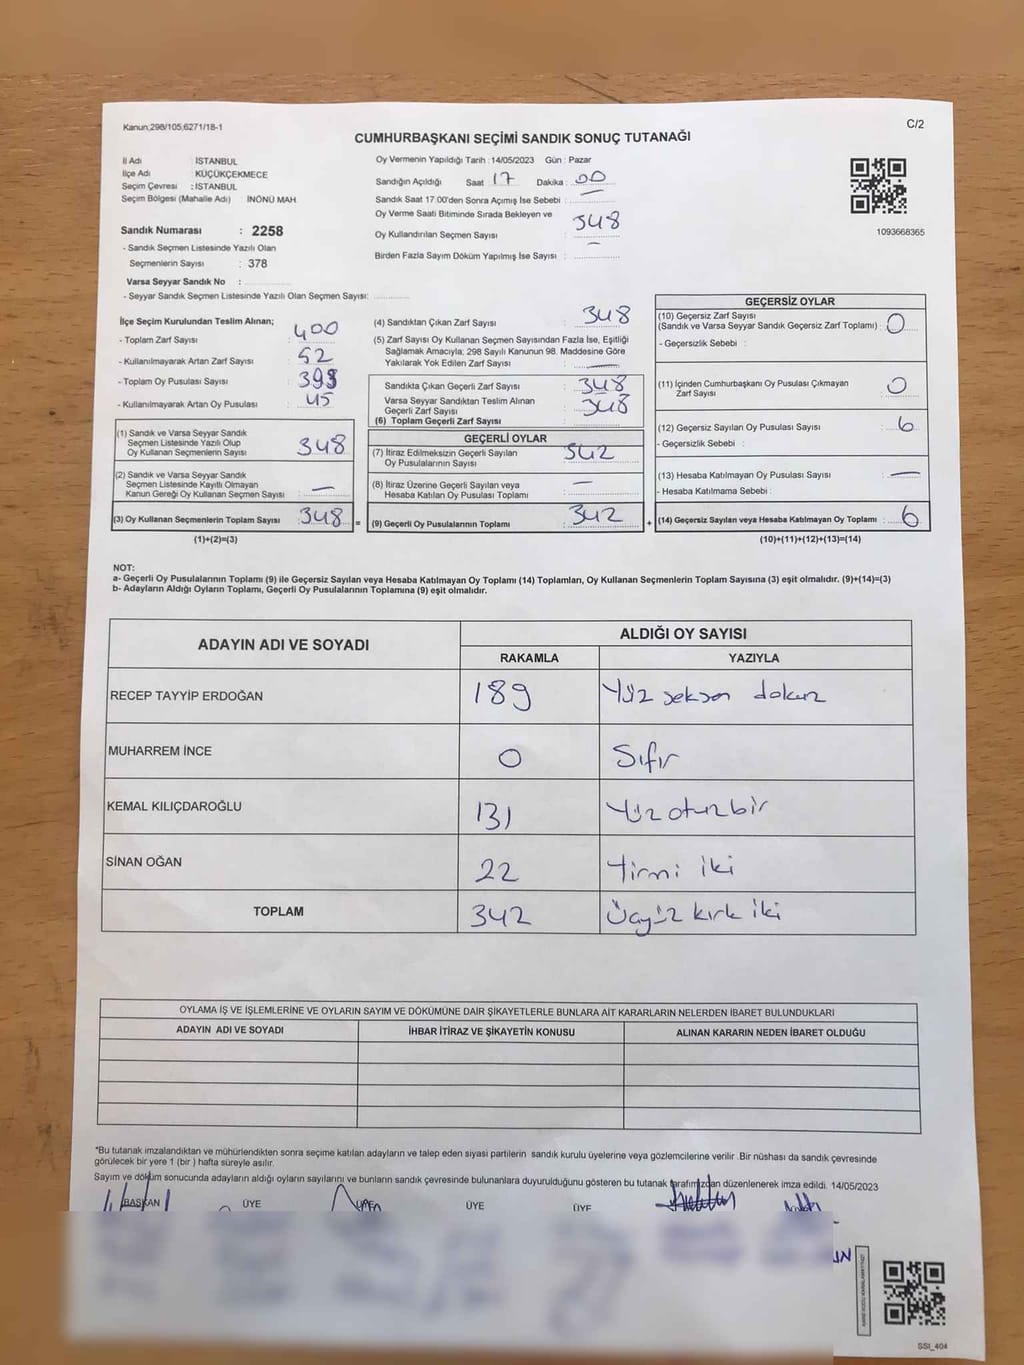 Kanun;298/105,6271/18-1
C/2
CUMHURBAŞKANI SEÇİMİ SANDIK SONUÇ TUTANAĞI
İl Adı : İSTANBUL
İlçe Adı : KÜÇÜKÇEKMECE
Seçim Çevresi : İSTANBUL
Seçim Bölgesi (Mahalle Adı) İNÖNÜ MAH.
Sandık Numarası : 2258
- Sandık Seçmen Listesinde Yazılı Olan
Seçmenlerin Sayısı : 378
Varsa Seyyar Sandık No :
- Seyyar Sandık Seçmen Listesinde Yazılı Olan Seçmen Sayısı:
Oy Vermenin Yapıldığı Tarih : 14/05/2023 Gün : Pazar
Sandığın Açıldığı Saat 17 Dakika : 00
Sandık Saat 17.00'den Sonra Açımış İse Sebebi : —
Oy Verme Saati Bitiminde Sırada Bekleyen ve
Oy Kullandırılan Seçmen Sayısı : 348
Birden Fazla Sayım Döküm Yapılmış İse Sayısı : —
1093668365
İlçe Seçim Kurulundan Teslim Alınan;
- Toplam Zarf Sayısı : 400
- Kullanılmayarak Artan Zarf Sayısı : 52
- Toplam Oy Pusulası Sayısı : 393
- Kullanılmayarak Artan Oy Pusulası : 45
(1) Sandık ve Varsa Seyyar Sandık
Seçmen Listesinde Yazılı Olup
Oy Kullanan Seçmenlerin Sayısı : 348
(2) Sandık ve Varsa Seyyar Sandık
Seçmen Listesinde Kayıtlı Olmayan
Kanun Gereği Oy Kullanan Seçmen Sayısı : —
(3) Oy Kullanan Seçmenlerin Toplam Sayısı : 348 =
(1)+(2)=(3)
(4) Sandıktan Çıkan Zarf Sayısı : 348
(5) Zarf Sayısı Oy Kullanan Seçmen Sayısından Fazla İse, Eşitliği
Sağlamak Amacıyla; 298 Sayılı Kanunun 98. Maddesine Göre
Yakılarak Yok Edilen Zarf Sayısı : —
Sandıkta Çıkan Geçerli Zarf Sayısı : 348
Varsa Seyyar Sandıktan Teslim Alınan
Geçerli Zarf Sayısı
(6) Toplam Geçerli Zarf Sayısı : 348
GEÇERLİ OYLAR
(7) İtiraz Edilmeksizin Geçerli Sayılan
Oy Pusulalarının Sayısı : 342
(8) İtiraz Üzerine Geçerli Sayılan veya
Hesaba Katılan Oy Pusulası Toplamı : —
(9) Geçerli Oy Pusulalarının Toplamı : 342 +
GEÇERSİZ OYLAR
(10) Geçersiz Zarf Sayısı
(Sandık ve Varsa Seyyar Sandık Geçersiz Zarf Toplamı) : 0
- Geçersizlik Sebebi :
(11) İçinden Cumhurbaşkanı Oy Pusulası Çıkmayan
Zarf Sayısı : 0
(12) Geçersiz Sayılan Oy Pusulası Sayısı : 6
- Geçersizlik Sebebi :
(13) Hesaba Katılmayan Oy Pusulası Sayısı : —
- Hesaba Katılmama Sebebi :
(14) Geçersiz Sayılan veya Hesaba Katılmayan Oy Toplamı : 6
(10)+(11)+(12)+(13)=(14)
NOT:
a- Geçerli Oy Pusulalarının Toplamı (9) ile Geçersiz Sayılan veya Hesaba Katılmayan Oy Toplamı (14) Toplamları, Oy Kullanan Seçmenlerin Toplam Sayısına (3) eşit olmalıdır. (9)+(14)=(3)
b- Adayların Aldığı Oyların Toplamı, Geçerli Oy Pusulalarının Toplamına (9) eşit olmalıdır.
ADAYIN ADI VE SOYADI ALDIĞI OY SAYISI
RAKAMLA YAZIYLA
RECEP TAYYİP ERDOĞAN 189 Yüz seksen dokuz
MUHARREM İNCE 0 Sıfır
KEMAL KILIÇDAROĞLU 131 Yüz otuz bir
SİNAN OĞAN 22 Yirmi iki
TOPLAM 342 Üçyüz kırk iki
OYLAMA İŞ VE İŞLEMLERİNE VE OYLARIN SAYIM VE DÖKÜMÜNE DAİR ŞİKAYETLERLE BUNLARA AİT KARARLARIN NELERDEN İBARET BULUNDUKLARI
ADAYIN ADI VE SOYADI İHBAR İTİRAZ VE ŞİKAYETİN KONUSU ALINAN KARARIN NEDEN İBARET OLDUĞU
*Bu tutanak imzalandıktan ve mühürlendikten sonra seçime katılan adayların ve talep eden siyasi partilerin sandık kurulu üyelerine veya gözlemcilerine verilir. Bir nüshası da sandık çevresinde
görülecek bir yere 1 (bir ) hafta süreyle asılır.
Sayım ve döküm sonucunda adayların aldığı oyların sayılarını ve bunların sandık çevresinde bulunanlara duyurulduğunu gösteren bu tutanak tarafımızdan düzenlenerek imza edildi. 14/05/2023
BAŞKAN ÜYE ÜYE ÜYE ÜYE
SSI_404